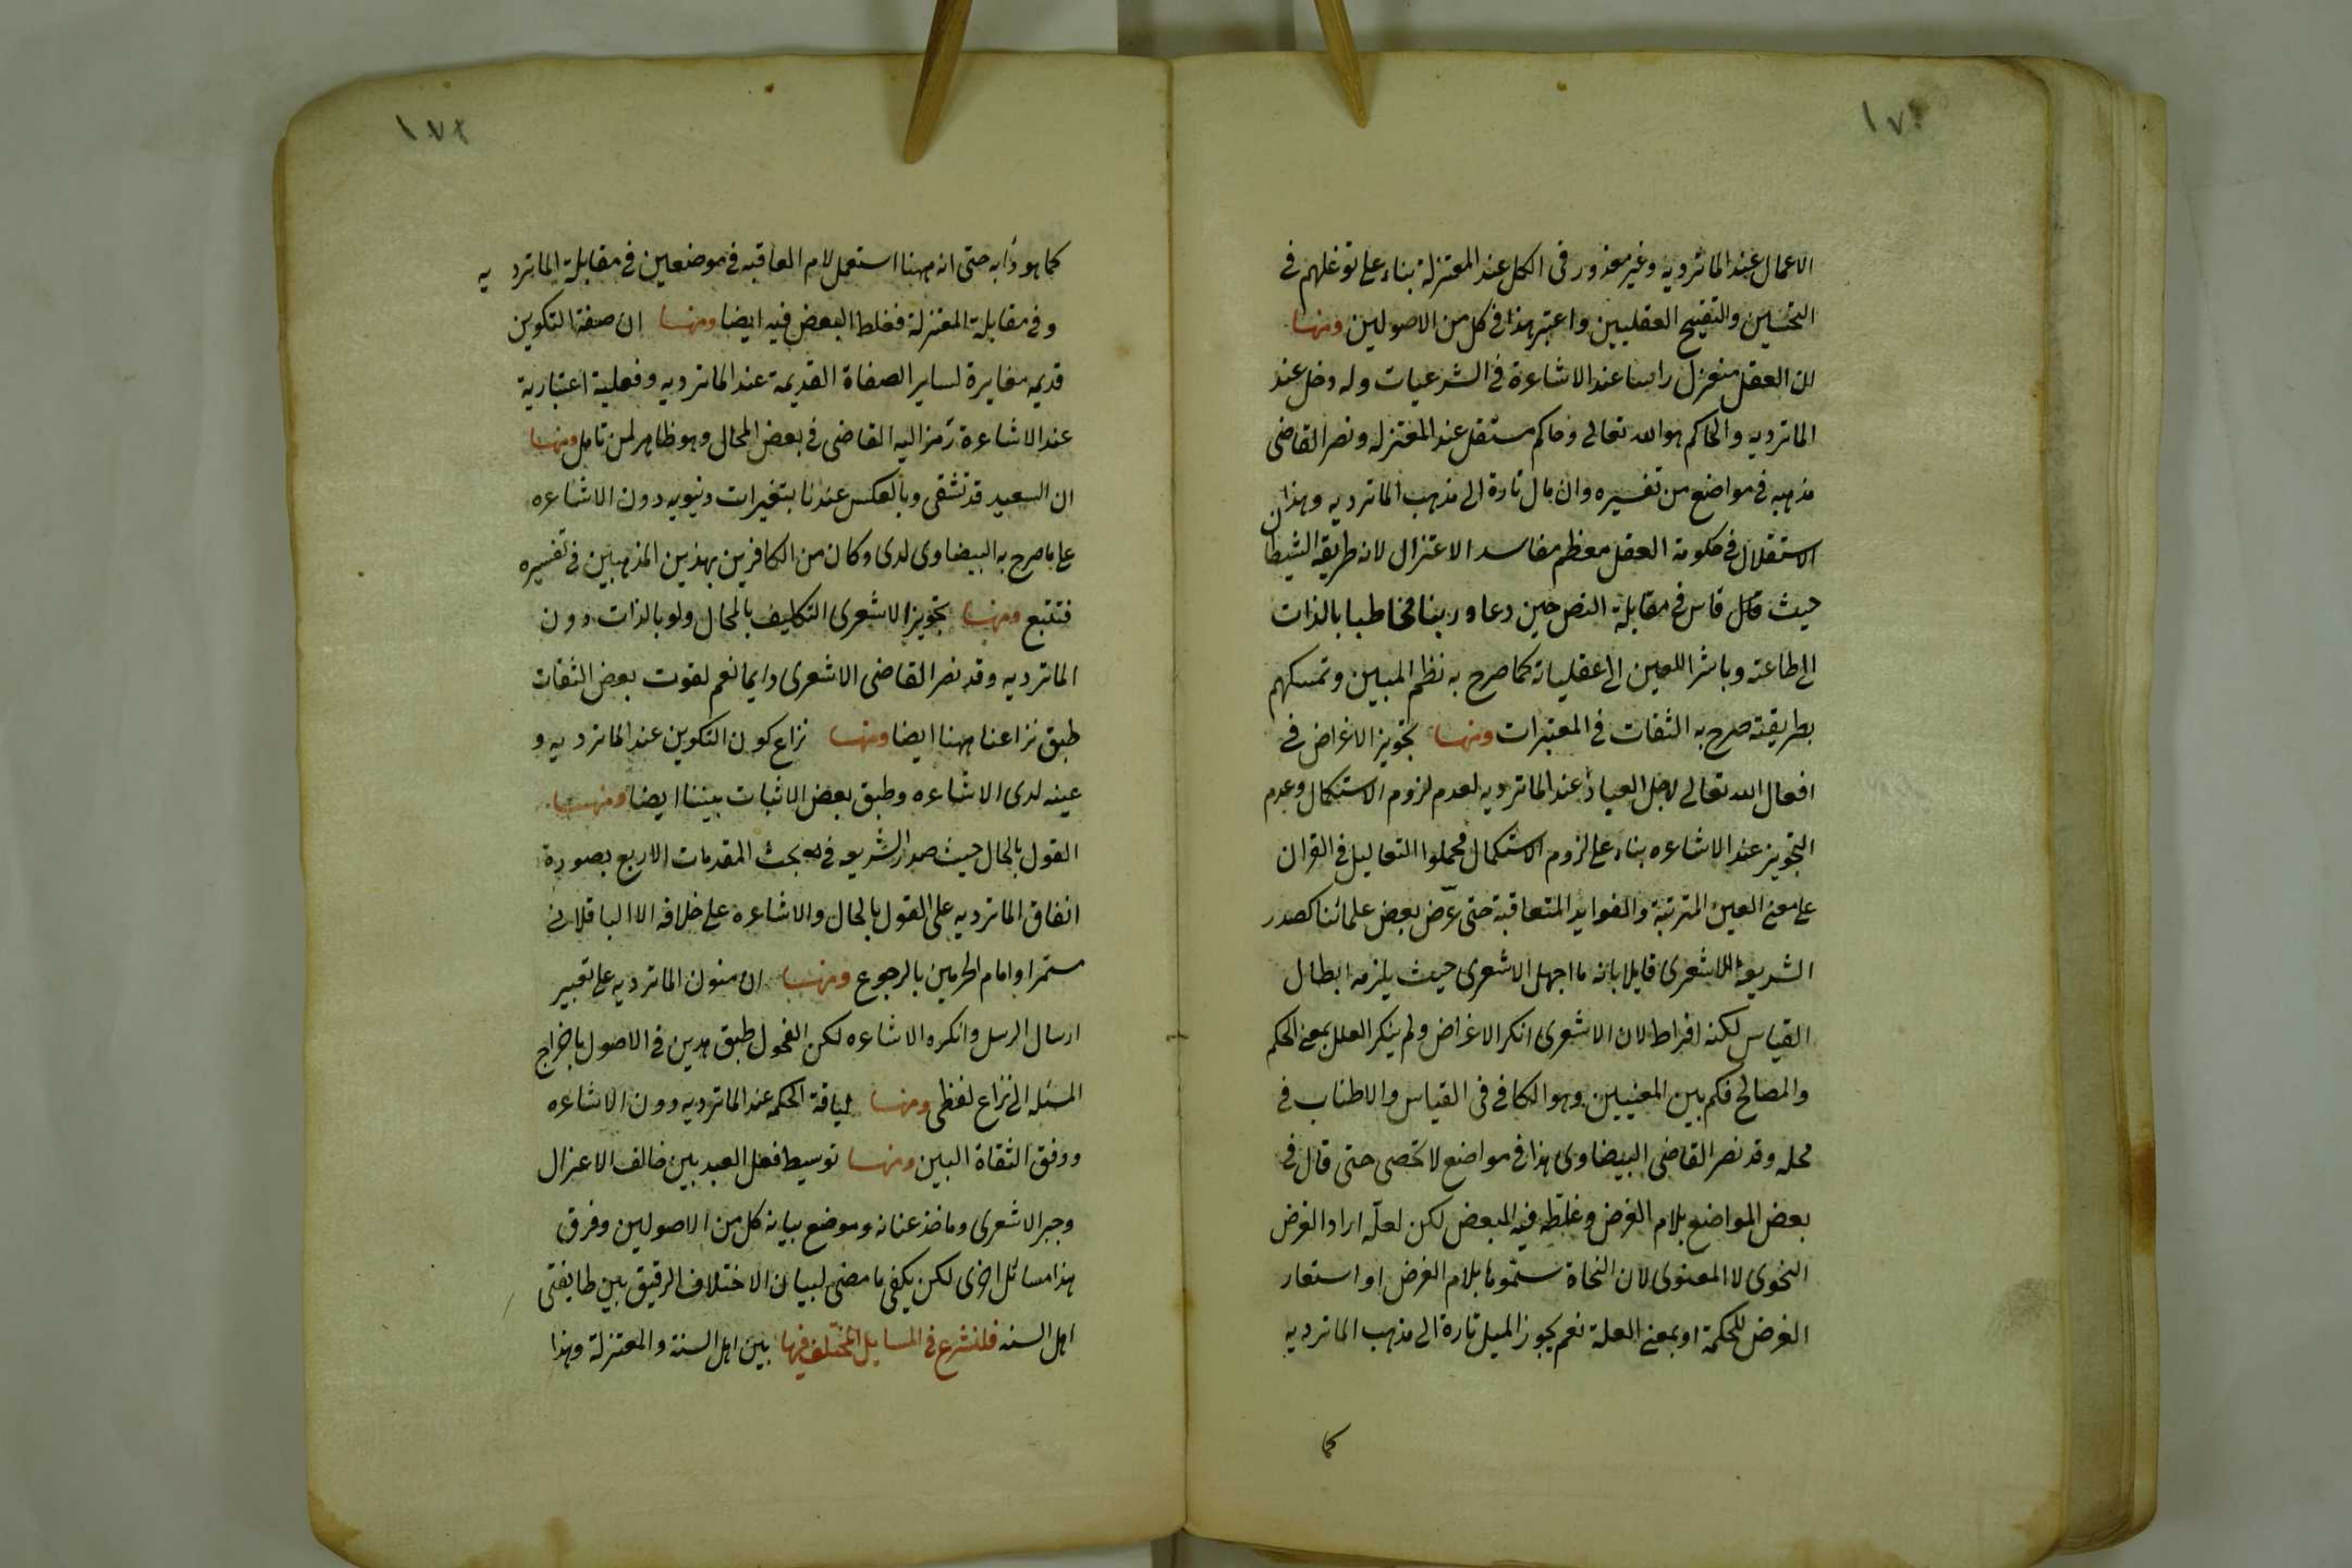 ١٧١
الاعمال عند الماتريديه وغير معذور فى الكل عند المعتزلة بناء على توغلهم فى
التحسين والتقبيح العقليين واعتبر هذا فى كل من الاصوليين ومنها
ان العقل منعزل راسا عند الاشاعرة فى الشرعيات وله دخل عند
الماتريديه والحاكم هو الله تعالى وحاكم مستقل عند المعتزله ونصر القاضى
مذهبه فى مواضع من تفسيره وان مال تارة الى مذهب الماتريديه وهذان
الاستقلال فى حكومة العقل معظم مفاسد الاعتزال لانه طريقة الشيطان
حيث قال قاس فى مقابلة النص حين دعاه ربنا مخاطبا بالذات
الى طاعته وباشر اللعين الى عقلياته كما صرح به نظم المبين وتمسكهم
بطريقته صرح به الثقات فى المعتبرات ومنها تجويز الاغراض فى
افعال الله تعالى لاجل العباد عند الماتريديه لعدم لزوم الاستكمال وعدم
التجويز عند الاشاعره بناء على لزوم الاستكمال فحملوا التعاليل فى القران
على معنى العين المترتبة والفوايد المتعاقبة حتى عرّض بعض علمائنا كصدر
الشريعة للاشعرى قايلا بانه ما اجهل الاشعرى حيث يلزمه ابطال
القياس لكنه افراط لان الاشعرى انكر الاغراض ولم ينكر العلل بمعنى الحكم
والمصالح فكم بين المعنيين وهو الكافى فى القياس والاطناب فى
محله وقد نصر القاضى البيضاوى هذا فى مواضع لا تحصى حتى قال فى
بعض المواضع بلام الغرض وغلّطه فيه البعض لكن لعلّه اراد الغرض
النحوى لا المعنوى لان النحاة سمّوها بلام الغرض او استعار
الغرض للحكمة او بمعنى العلة نعم يجوز الميل تارة الى مذهب الماتريديه
كما
١٧٢
كما هو دأبه حتى انه ههنا استعمل لام العاقبه فى موضعين فى مقابلة الماتريديه
وفى مقابلة المعتزلة فغلط البعض فيه ايضا ومنها ان صفة التكوين
قديمه مغايرة لساير الصفاة القديمة عند الماتريديه وفعلية اعتبارية
عند الاشاعرة رمز اليه القاضى فى بعض المحال وهو ظاهر لمن تامل ومنها
ان السعيد قد تشقى وبالعكس عندنا بتغيرات دنيويه دون الاشاعره
على ما صرح به البيضاوى لدى وكان من الكافرين بهذين المذهبين فى تفسيره
فتتبع ومنها تجويز الاشعرى التكليف بالمحال ولو بالذات دون
الماتريديه وقد نصر القاضى الاشعرى دايما نعم لقوت بعض الثقات
طبق نزاعنا ههنا ايضا ومنها نزاع كون التكوين عند الماتريديه و
عينه لدى الاشاعره وطبق بعض الاثبات بيننا ايضا ومنها
القول بالحال حيث صدر الشريعه فى بحث المقدمات الاربع بصورة
اتفاق الماتريديه على القول بالحال والاشاعره على خلافه الا الباقلانى
مستمرا وامام الحرمين بالرجوع ومنها ان منون الماتريديه على تعبير
ارسال الرسل وانكره الاشاعره لكن الفحول طبق هدين فى الاصول باخراج
المسئله الى نزاع لفظى ومنها لياقة الحكمه عند الماتريديه دون الاشاعره
ووفق الثقاة البين ومنها توسيط فعل العبد بين خالف الاعزال
وجبر الاشعرى وماخذ عنانه وموضع بيانه كل من الاصوليين وفرق
هذا مسائل اخرى لكن يكفى ما مضى لبيان الاختلاف الرقيق بين طايفتى
اهل السنه فلنشرع فى المسايل المختلف فيها بين اهل السنة والمعتزلة وهذا